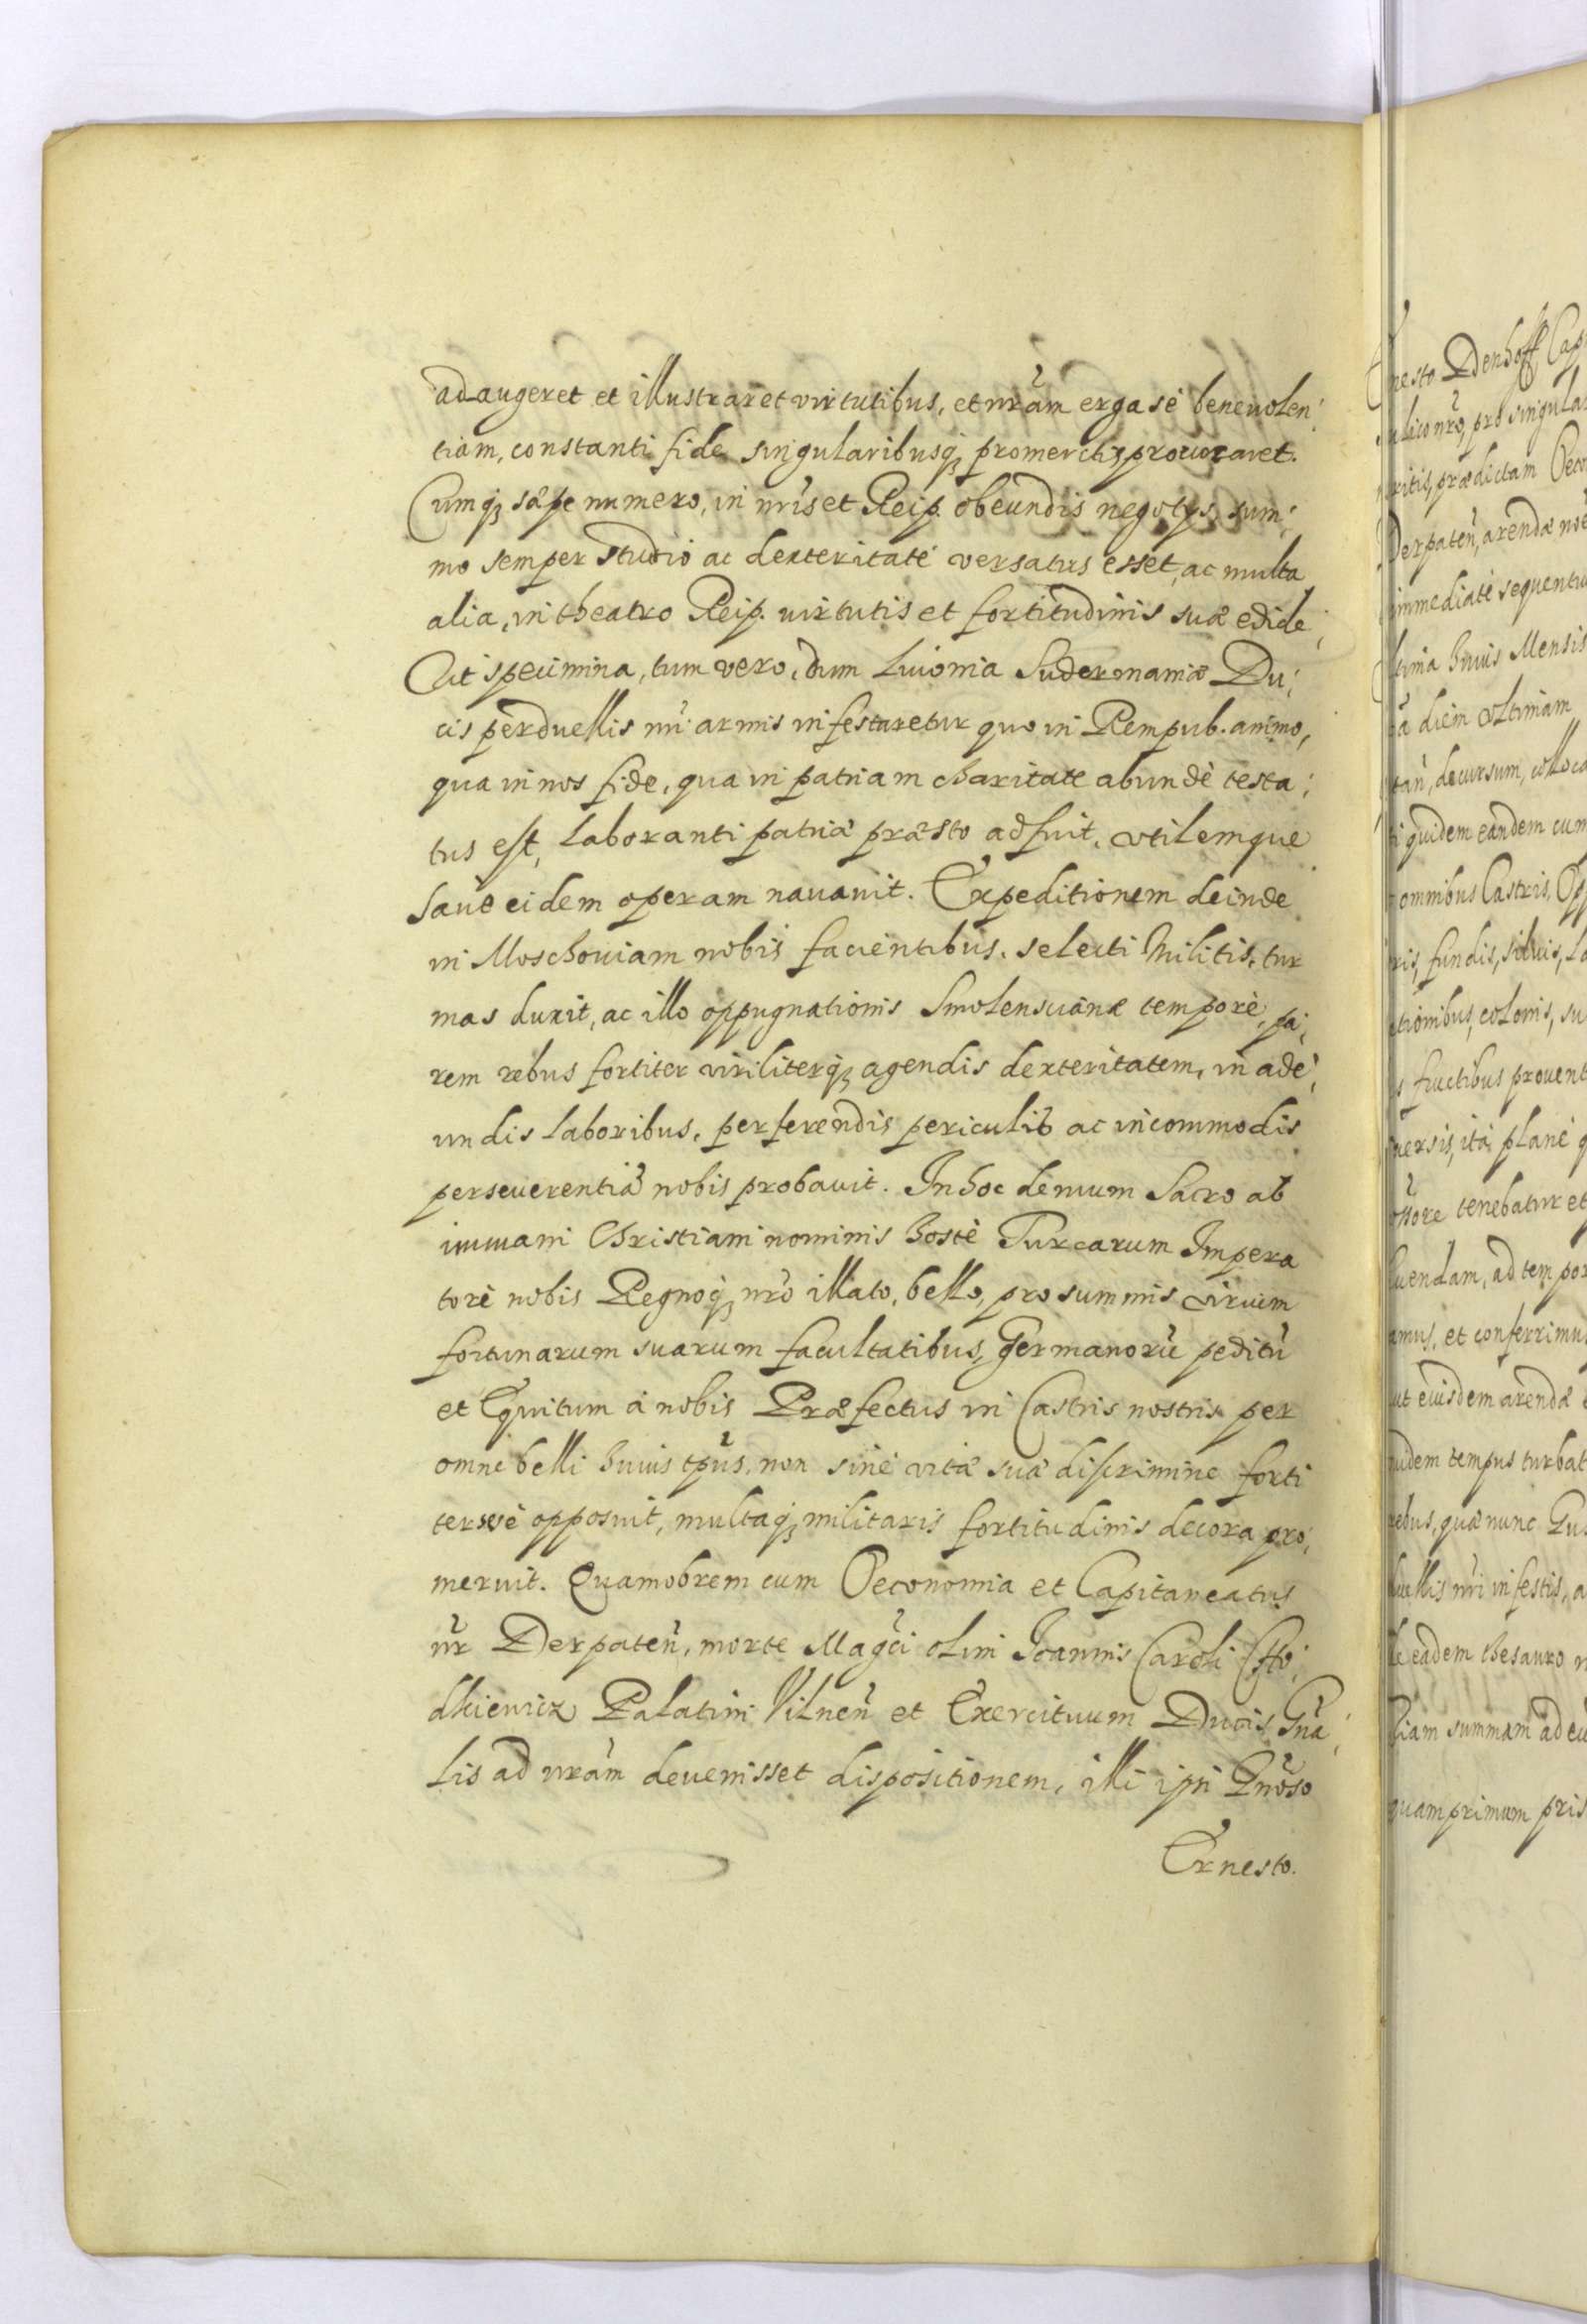 adaugeret et illustraret virtutibus, et nrãm erga sè beneuolen:
tiam, constanti fide singularibusq; promeritis prouocaret.
Cumq; sæpe numero, in nr̃is et Reip. obeundis negotys, sum:
mo semper studio ac dexteritate versatus esset, ac multa
alia, in theatro Reip. virtutis et fortitudinis suæ edide:
rit specimina, tum vero, dum Liuonia Sudermaniæ Du:
cis perduellis nr̃i armis infestaretur quo in Rempub. animo,
qua in nos fide, qua in patriam charitate abundè testa:
tus est, laboranti patriæ præsto adfuit, vtilemque
sanè eidem operam nauauit. Expeditionem deinde
in Moschouiam nobis facientibus, selecti militis, tur
mas duxit, ac illo oppugnationis Smolenscanæ temporè, pa:
rem rebus fortiter viriliterq; agendis dexteritatem, in ade:
undis laboribus, perferendis periculis ac incommodis
perseuerentiã nobis probauit. In hoc demum Sacro ab
immani Christiani nominis hostè Turcarum Impera
torè nobis Regnoq; nr̃o illato, bello, pro summis virium
fortunarum suarum facultatibus, Germanorũ peditũ
et Equitum à nobis Præfectus in Castris nostris per
omne belli huius tp̃us, non sinè vitæ suæ discrimine forti
ter sesè opposuit, multaq; militaris fortitudinis decora pro:
meruit. Quamobrem cum Oeconomia et Capitaneatus
nr̃ Derpateñ, morte Mag̃ci olim Joannis Caroli Cho:
dkiewicz Palatini Vilneñ et Exercituum Ducis Gña:
lis ad nrãm deuenisset dispositionem, illi ipsi Gñoso
Ernesto.
nesto Denhoff Cap
nr̃o, pro singular
ritis, prædictam Oeco
Derpateñ, arendæ
immediatè sequentu
tima huius Mensis
diem vltimam
decursum, colloca
quidem eandem cum
omnibus Castris, Opp
ris, fundis, siluis, la
tionibus, colonis, su
fructibus prouent
uersis, ità planè q
tenebatur et
uendam, ad tempor
amus, et conferrimu
ut eiusdem arendæ
udem tempus turbat
rebus, quæ nunc
duellis nr̃i infestis, a
le eadem thesauro
tiam summam ad
quamprimum pris